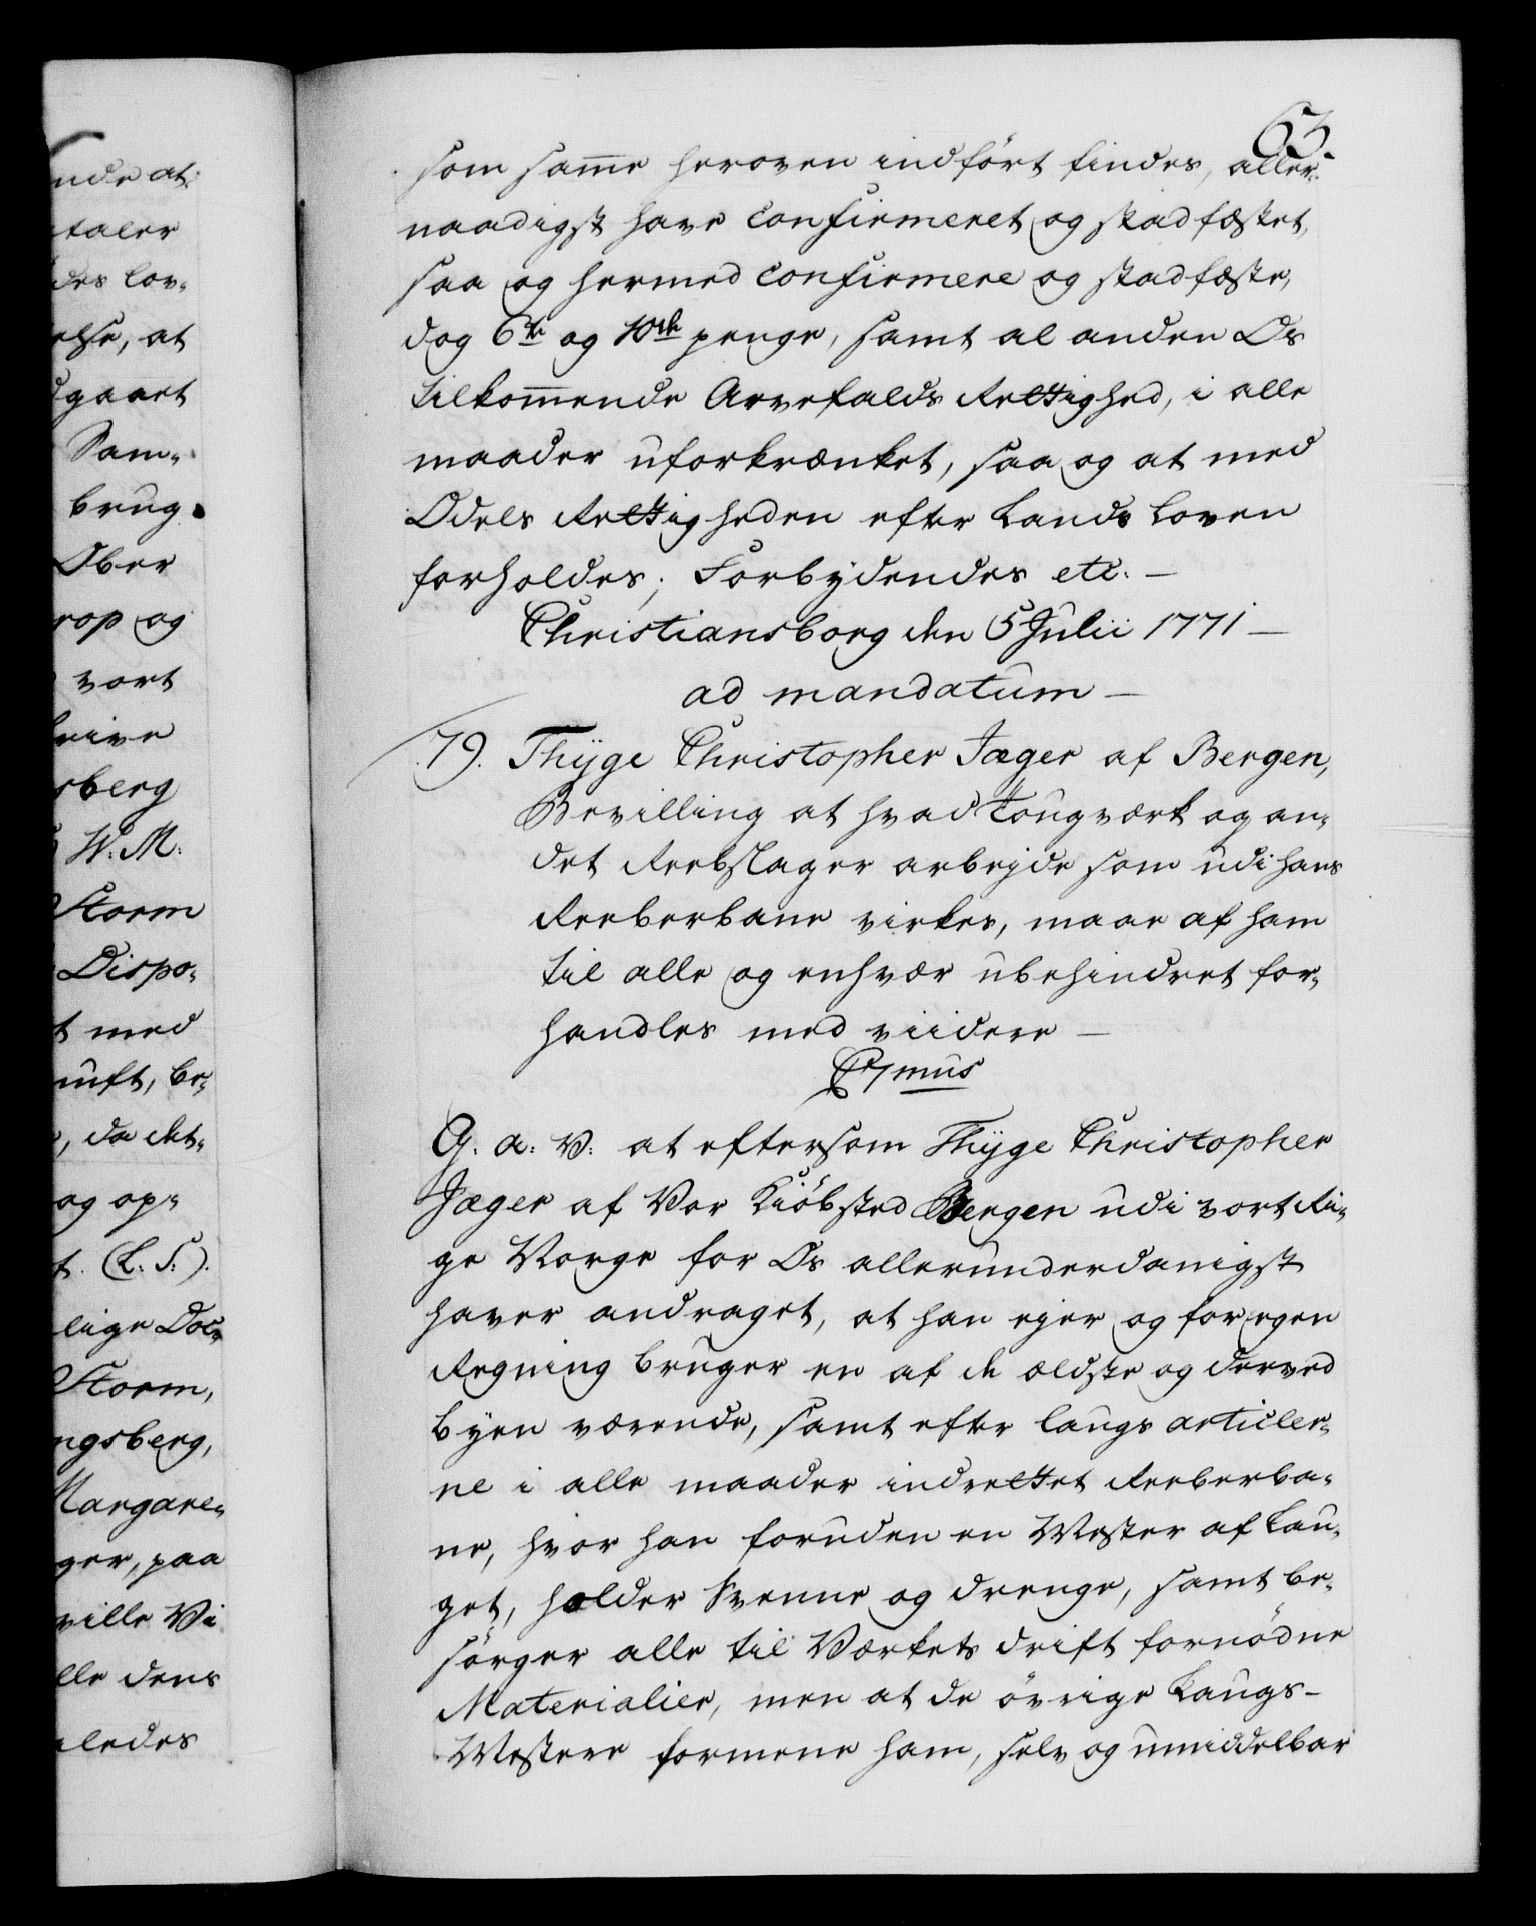 nde at
taler
des lov-
else, at
dgaaet
Sam-
brug.
Ober
rop og
vort
krive
sberg
W. M.
Storm
Dispo-
t med
unft, be-
, da det-
og op-
t. (L. S.).
lige Doc-
Storm,
ngsberg,
Margare-
ger, paa
ville Vi
lle dens
aledes
63.
som same heroven indført findes, aller-
naadigst have confirmeret og stadfæstet,
saa og hermed confirmere og stadfæste,
dog 6te og 10de penge, samt al anden Os
tilkomende Arvefalds Rettighed, i alle
maader uforkrænket, saa og at med
Odels Rettigheden efter Lands Loven
forholdes; Forbydendes etc. —
Christiansborg den 5 Julii 1771 —
ad mandatum —
79. Thÿge Christopher Jæger af Bergen,
Bevilling at hvad Tougværk og an-
det Reebslager arbeyde som udi hans
Reeberbane virkes, maae af ham
til alle og enhver ubehindret for-
handles med viidere —
C 7mus
G. a: V: at eftersom Thÿge Christopher
Jæger af Vor Kiöbsted Bergen udi vort Ri-
ge Norge for Os allerunderdanigst
haver andraget, at han ejer og for egen
Regning bruger en af de ældste og derved
Byen værende, samt efter Laugs articler-
ne i alle maader indrettet Reeberba-
ne, hvor han foruden en Mester af Lau-
get, holder Svenne og drenge, samt be-
sörger alle til Værkets drift fornödne
Materialier, men at de övrige Laugs-
Mestere formene ham, selv og umiddelbar